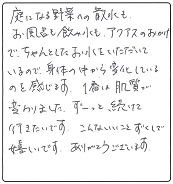 庭になる野菜への散水も、
お風呂も飲み水も、アクアスのおかげ
でちゃんとしたお水をいただいて
いるので、身体の中から変化している
のを感じます。1番は肌質が
変わりました。ずーっと続けて
行きたいです。こんないいことずくしで
嬉しいです。ありがとうございます。